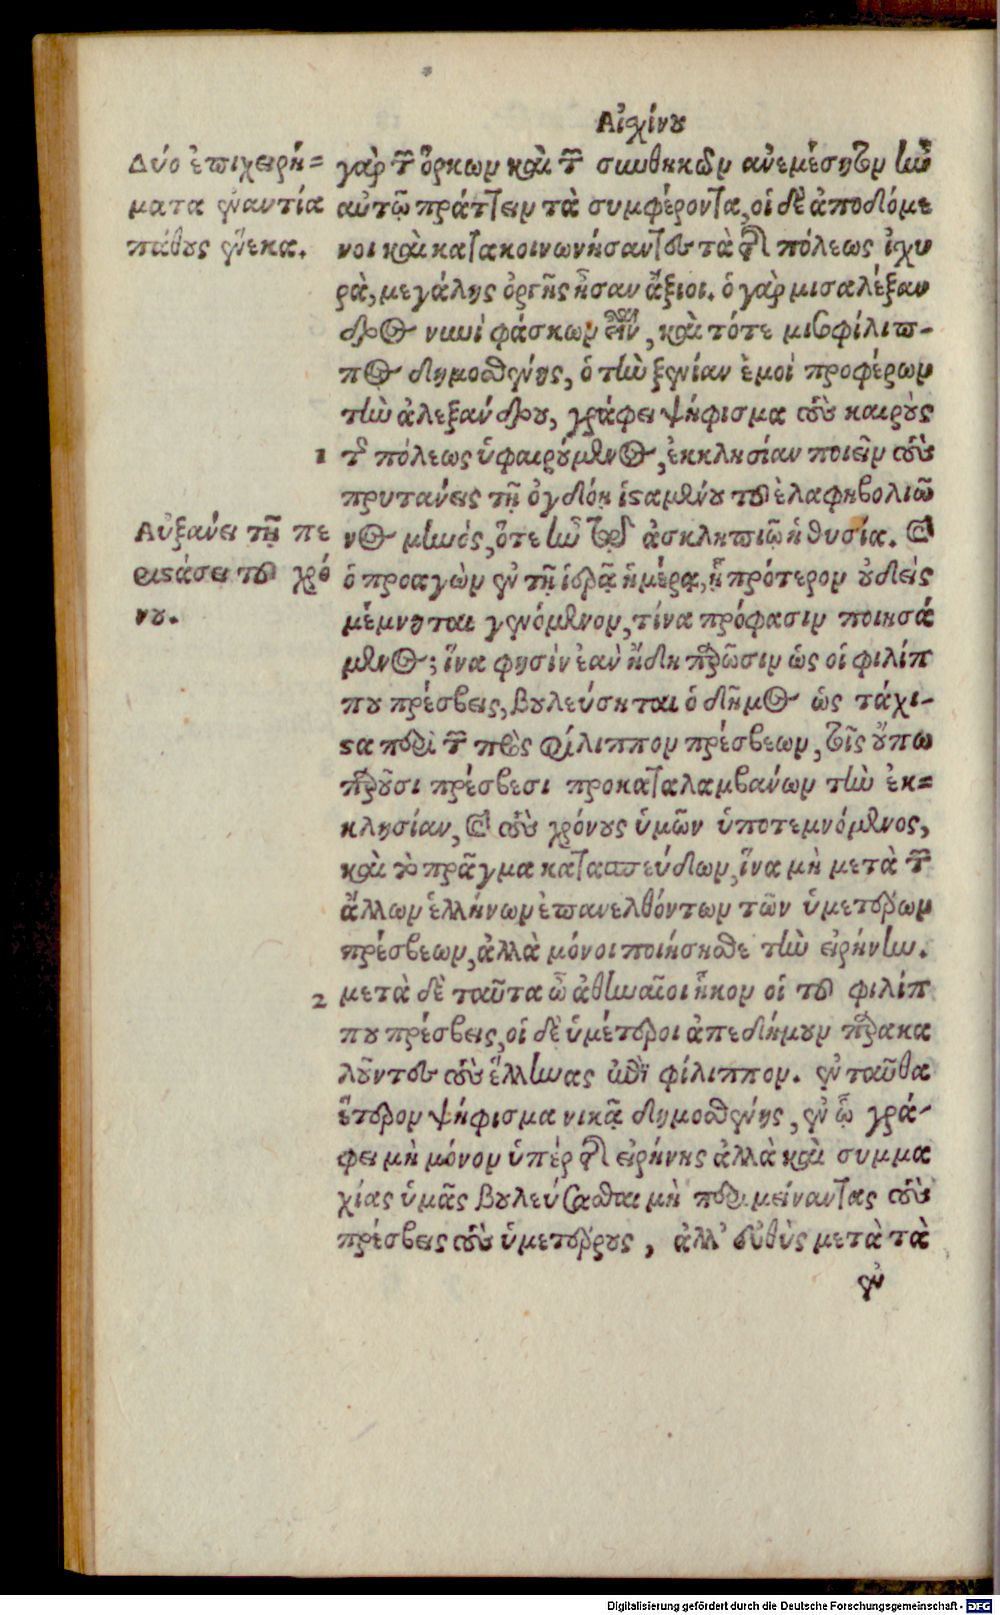 Αἰσχίνου
Δύο ἐπιχειρή=
ματα ἐναντία
πάθους ἕνεκα.
γὰρ τῶν ὅρκων καὶ τῶν συνθηκῶν ἀνεμέσητον ἦν
αὐτῷ πράττειν τὰ συμφέροντα, οἱ δὲ ἀποδόμε
νοι καὶ κατακοινωνήσαντες τὰ τῆς πόλεως ἰχυ
ρὰ, μεγάλης ὀργῆς ἦσαν ἄξιοι. ὁ γὰρ μισαλέξαν
δρος νυνὶ φάσκων εἶναι, καὶ τότε μισοφίλιπ-
πος δημοσθένης, ὁ τὴν ξενίαν ἐμοὶ προφέρων
τὴν ἀλεξάνδρου, γράφει ψήφισμα τοὺς καιροὺς
1 τῆς πόλεως ὑφαιρούμενος, ἐκκλησίαν ποιεῖν τοὺς
πρυτανεις τῇ ὀγδόῃ ἱσταμένου τοῦ ἐλαφηβολιῶ
Αὐξάνει τῇ πε
ριστάσει τοῦ χρό
νου.
νος μηνὸς, ὅτε ἦν τῷ ἀσκληπιῷ ἡ θυσία. καὶ
ὁ προαγὼν ἐν τῇ ἱερᾷ ἡμέρᾳ, ἣ πρότερον οὐδεὶς
μέμνηται γενόμενον, τίνα πρόφασιν ποιησά
μενος; ἵνα φησὶν ἐὰν ἤδη παρῶσιν ὡς οἱ φιλίπ
που πρέσβεις, βουλεύσηται ὁ δῆμος ὡς τάχι-
στα περὶ τῶν πρὸς φίλιππον πρέσβεων, τοῖς οὔπω
παροῦσι πρέσβεσι προκαταλαμβάνων τὴν ἐκ=
κλησίαν, καὶ τοὺς χρόνους ὑμῶν ὑποτεμνόμενος,
καὶ τὸ πρᾶγμα κατασπεύδων, ἵνα μὴ μετὰ τῶν
ἄλλων ἑλλήνων ἐπανελθόντων τῶν ὑμετέρων
πρέσβεων, ἀλλὰ μόνοι ποιήσησθε τὴν εἰρήνην.
2 μετὰ δὲ ταῦτα ὦ ἀθηναῖοι ἧκον οἱ τοῦ φιλίπ
που πρέσβεις, οἱ δὲ ὑμέτεροι ἀπεδήμουν παρακα
λοῦντες τοὺς ἕλληνας ἐπὶ φίλιππον. ἐνταῦθα
ἕτερον ψήφισμα νικᾷ δημοσθένης, ἐν ᾧ γρά-
φει μὴ μόνον ὑπὲρ τῆς εἰρήνης ἀλλὰ καὶ συμμα
χίας ὑμᾶς βουλεύσασθαι μὴ περιμείναντας τοὺς
πρέσβεις τοὺς ὑμετέρους, ἀλλ' εὐθὺς μετὰ τὰ
ἐν
Digitalisierung gefördert durch die Deutsche Forschungsgemeinschaft - DFG